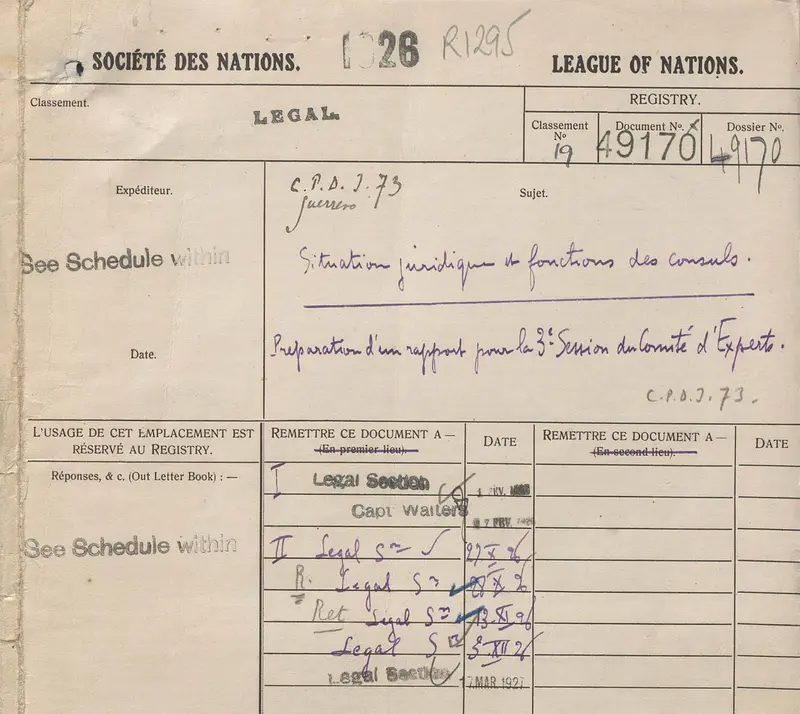 SOCIÉTÉ DES NATIONS.
1926
R1295
LEAGUE OF NATIONS.
Classement.
LEGAL.
REGISTRY.
Classement
No
19
Document No.
49170
Dossier No.
49170
Expéditeur.
See Schedule within
Date.
C.P.D.I. 73
Guerrero
Sujet.
Situation juridique et fonctions des consuls.
Préparation d'un rapport pour la 3e Session du Comité d'Experts.
C.P.D.I. 73.
L'USAGE DE CET EMPLACEMENT EST
RÉSERVÉ AU REGISTRY.
Réponses, & c. (Out Letter Book) : —
See Schedule within
REMETTRE CE DOCUMENT A —
(En premier lieu).
DATE
REMETTRE CE DOCUMENT A —
(En second lieu).
DATE
I Legal Section
Capt Walters
II Legal Sn 27 X 26
R. Legal Sn 28 X 26
Ret Legal Sn 13 XI 26
Legal Sn 3 XII 26
Legal Section 17 MAR 1927